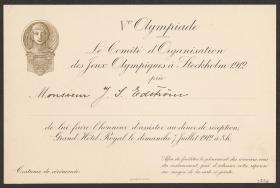 Vᵉ Olympiade
Le Comité d'Organisation
des Jeux Olympiques à Stockholm 1912
prie
Monsieur J. S. Edström
de lui faire l'honneur d'assister au dîner de réception,
Grand Hôtel Royal le dimanche 7 juillet 1912 à 8 h.
Costume de cérémonie.
Afin de faciliter le placement des convives vous
êtes instamment prié d'adresser votre réponse